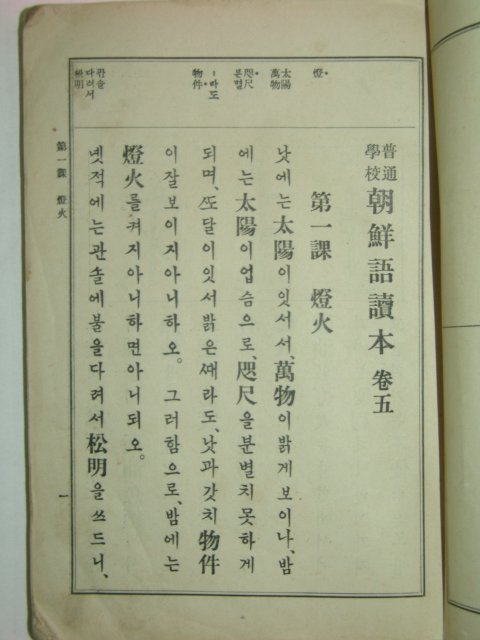 普通
學校
朝鮮語讀本 卷五
第一課 燈火
낫에는太陽이잇서서、萬物이밝게보이나、밤
에는太陽이업슴으로、咫尺을分별치못하게
되며、ᄯᅩ달이잇서밝은ᄯᅢ라도、낫과갓치物件
이잘보이지아니하오。 그러함으로、밤에는
燈火를켜지아니하면아니되오。
녯적에는관솔에불을다려서松明을쓰드니、
燈
太陽
萬物
咫尺
분별
ᅳ라도
物件
관솔
다려서
松明
第一課 燈火
一